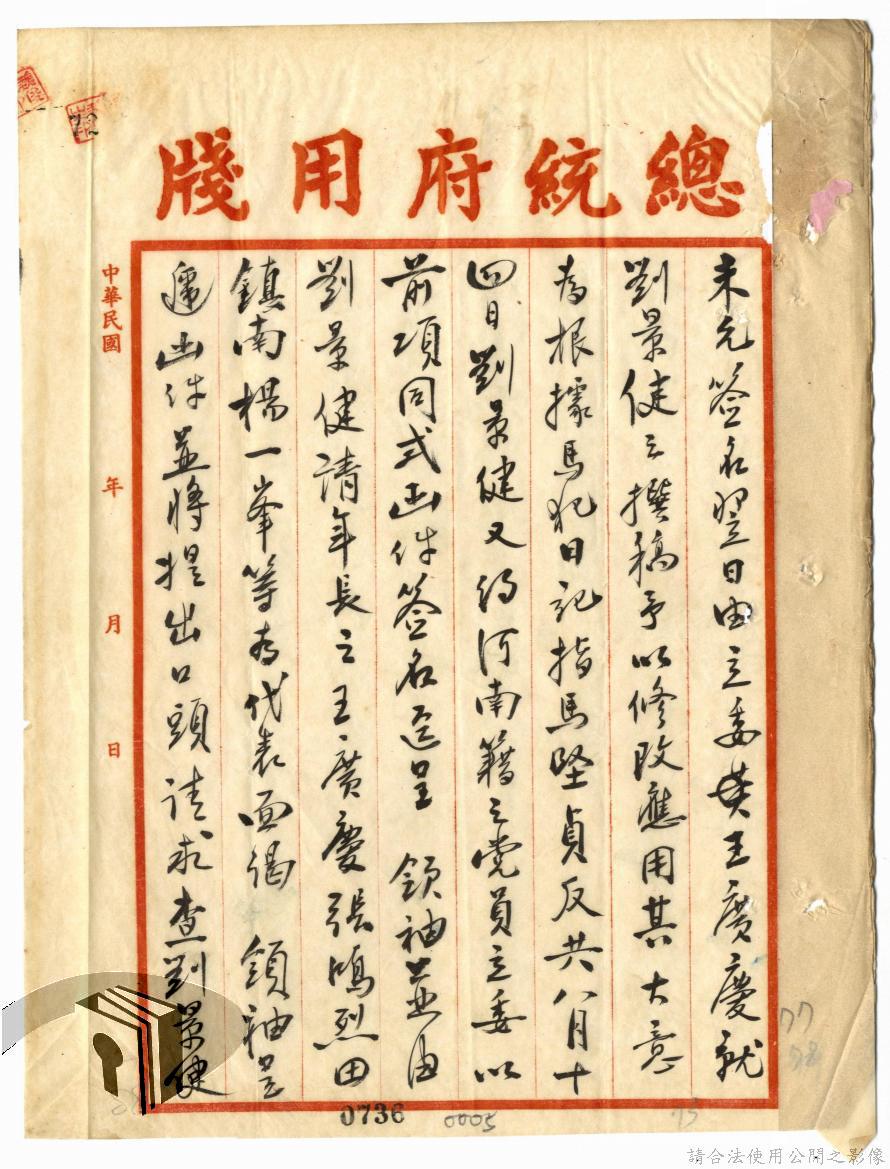 總統府用牋
未允簽名翌日由立委王廣慶就
劉景健之撰稿予以修改應用其大意
為根據馬犯日記指馬堅貞反共八月十
四日劉景健又約河南籍之党員立委以
前項同式函件簽名逕呈 領袖並由
劉景健請年長之王廣慶張鴻烈田
鎮南楊一峯等為代表面謁 領袖呈
遞函件並將提出口頭請求查劉景健
中華民國 年 月 日
72
77
78
0736 0005
請合法使用公開之影像